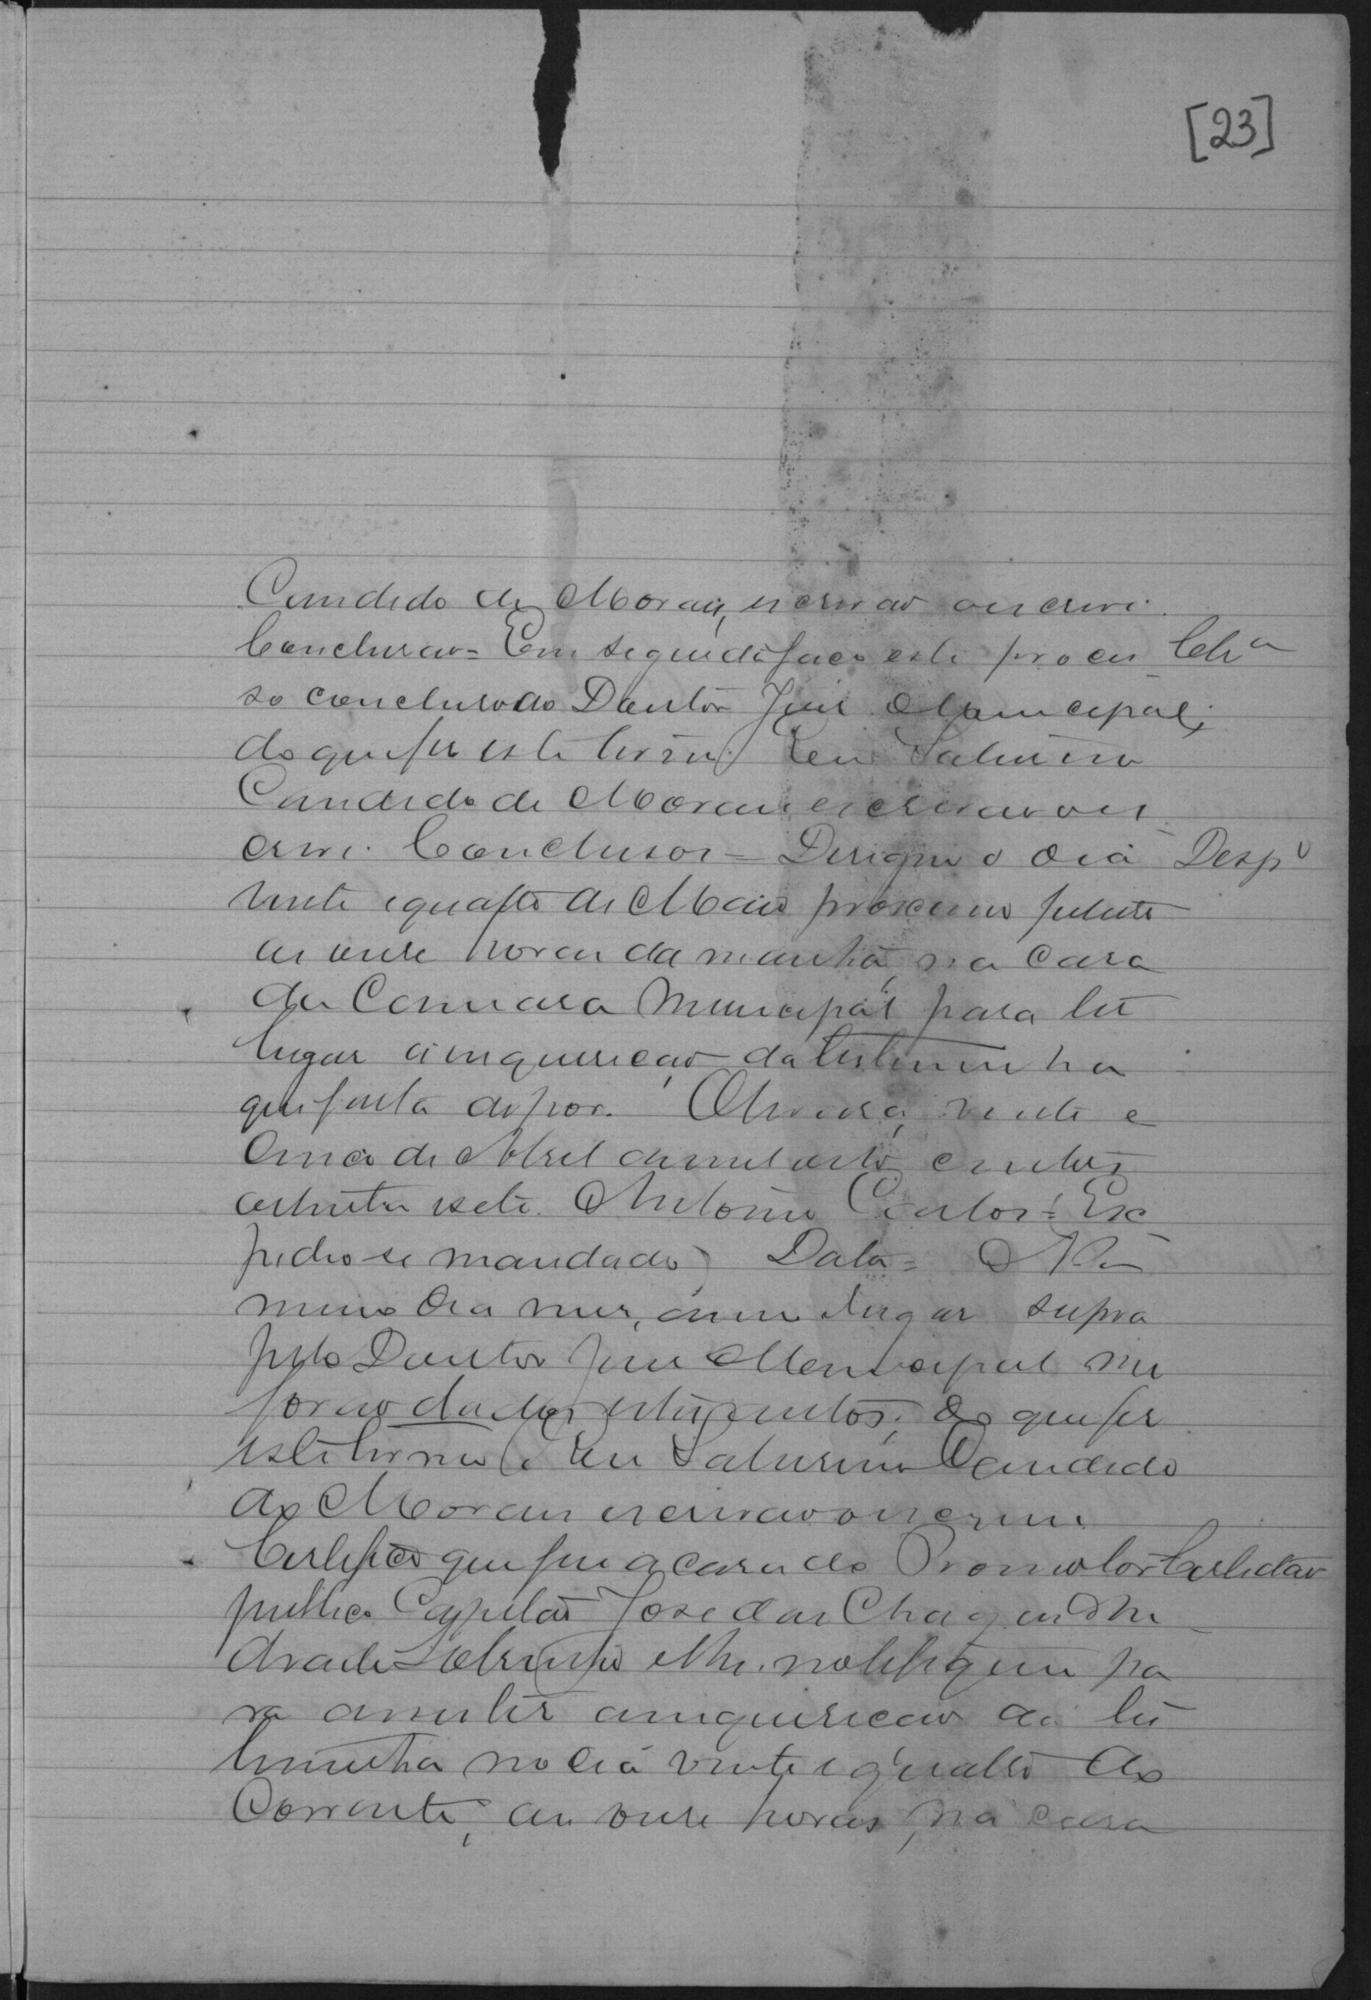 [23]
Candido de Moraes, escrivão o escrevi.
Conclusão = Em seguida faço este proces Clsª
so concluso ao Doutor Juiz Municipal;
do que fiz este termo. Eu Saturnino
Candido de Moraes escrivão o es
crevi. Conclusos = Designo o dia Despº
vinte e quatro de Maio proximo futuro
as onze horas da manhã, na casa
da Camara Municipal para ter
lugar a inquirição da testemunha
que falta depor. vinte e
cinco de Abril de mil oito centos
e oitenta e sete. Antonio Carlos = Ex
pedio-se mandado. Data = No
mesmo dia mez, anno e lugar supra
pelo Doutor Juiz Municipal me
forão dados estes autos; do que fiz
este termo. Eu Saturnino Candido
de Moraes escrivão o escrevi.
Certifico que fui a casa do Promotor Certidão
publico Capitão José das Chagas An
drade Sobrinho e lhe notifiquei pa
ra assistir a inquirição da tes
temunha no dia vinte e quatro do
Corrente, as onze horas, na casa